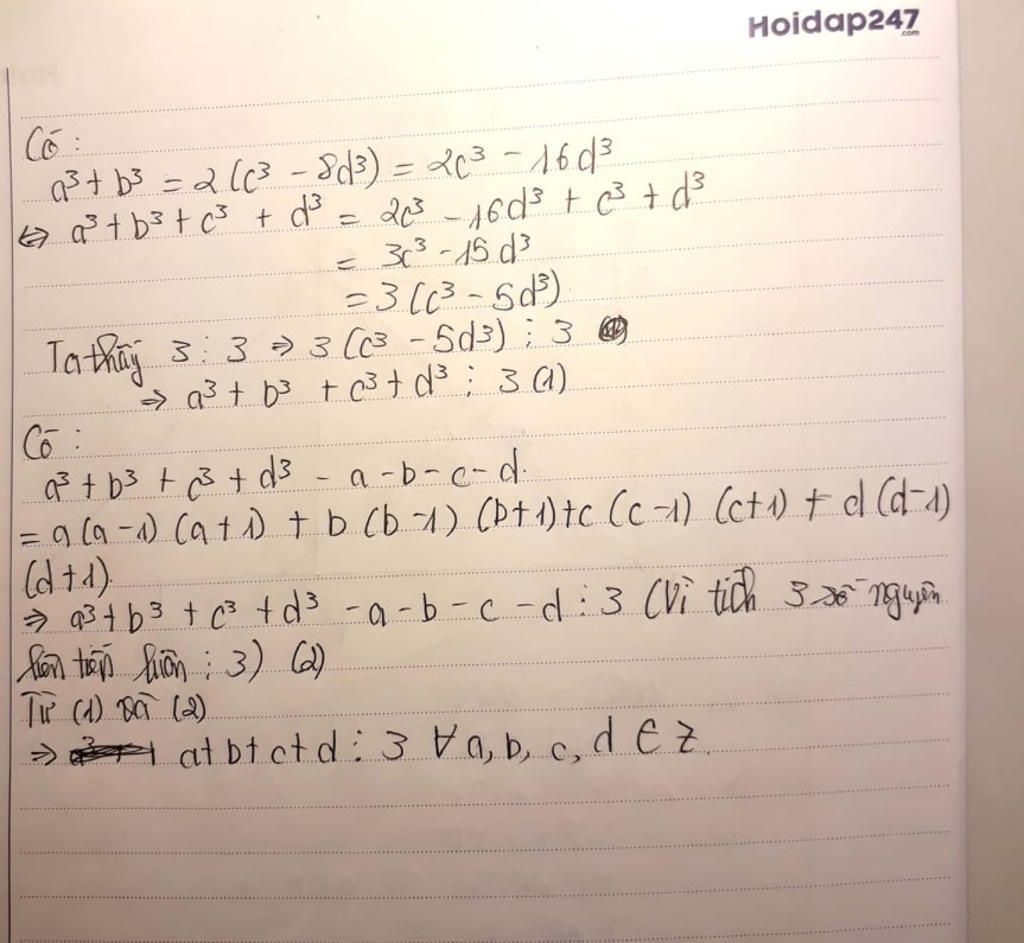 Hoidap247
.com
Có :
a³ + b³ = 2 (c³ - 8d³) = 2c³ - 16d³
⇔ a³ + b³ + c³ + d³ = 2c³ - 16d³ + c³ + d³
= 3c³ - 15d³
= 3 (c³ - 5d³)
Ta thấy 3 ⋮ 3 ⇒ 3 (c³ - 5d³) ⋮ 3
⇒ a³ + b³ + c³ + d³ ⋮ 3 (1)
Có :
a³ + b³ + c³ + d³ - a - b - c - d.
= a (a - 1) (a + 1) + b (b - 1) (b + 1) + c (c - 1) (c + 1) + d (d - 1)
(d + 1).
⇒ a³ + b³ + c³ + d³ - a - b - c - d ⋮ 3 (Vì tích 3 số nguyên
liên tiếp luôn ⋮ 3) (2)
Từ (1) và (2)
⇒ a + b + c + d ⋮ 3 ∀ a, b, c, d ∈ Z.